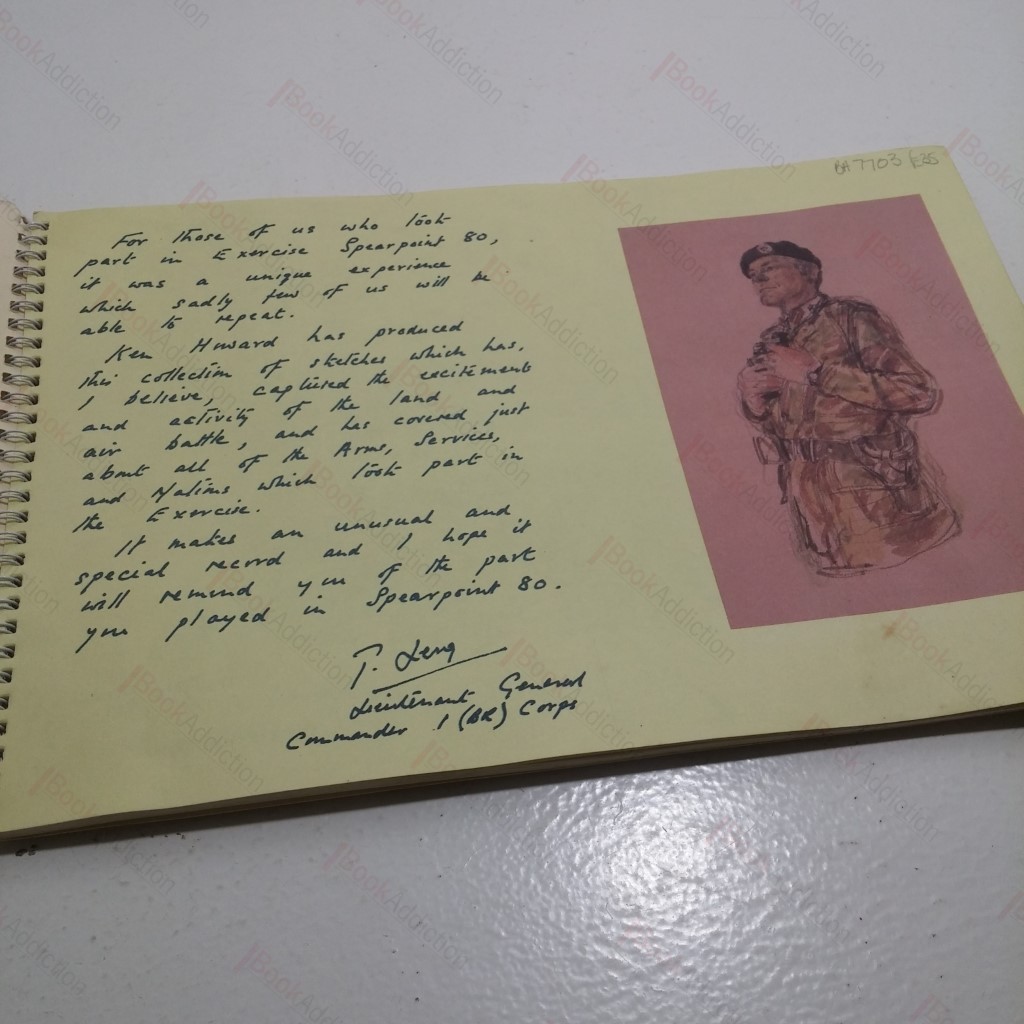 BA 7703 £35
For those of us who took
part in Exercise Spearpoint 80,
it was a unique experience
which sadly few of us will be
able to repeat.
Ken Howard has produced
this collection of sketches which has,
I believe, captured the excitement
and activity of the land and
air battle, and has covered just
about all of the Arms, Services,
and Nations which took part in
the Exercise.
It makes an unusual and
special record and I hope it
will remind you of the part
you played in Spearpoint 80.
P. Leng
Lieutenant General
Commander 1 (BR) Corps
BookAddiction